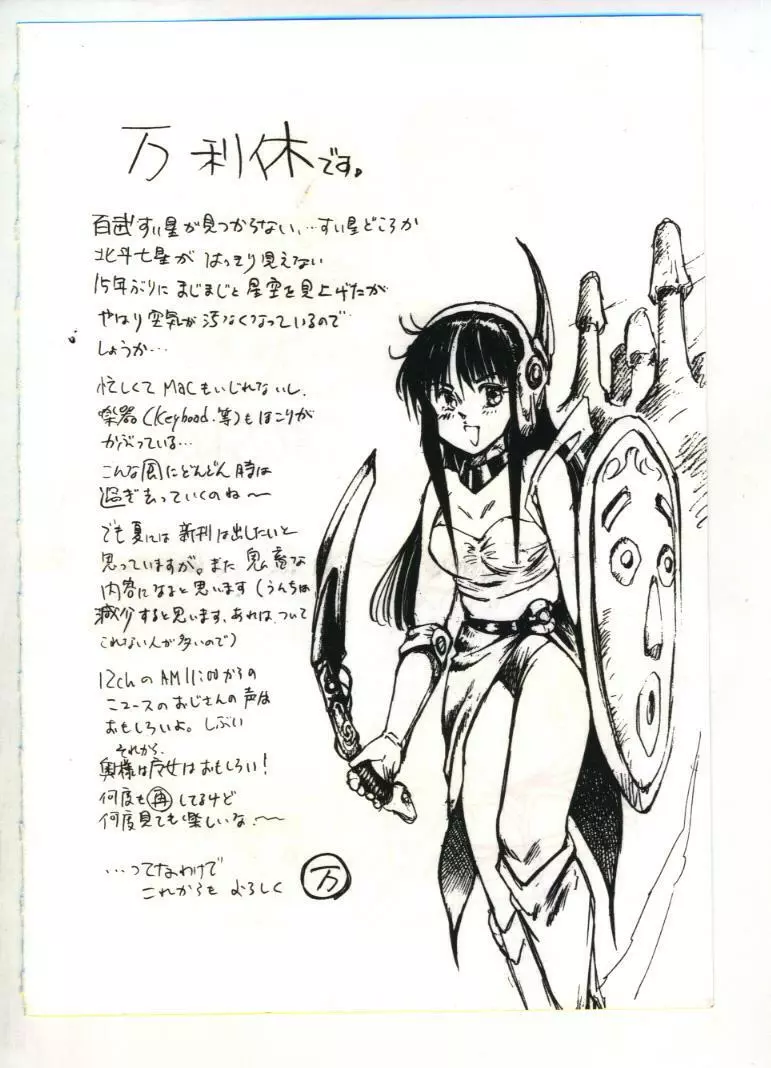 万利休です。
百武すい星が見つからない、…すい星どころか
北斗七星が はっきり見えない
15年ぶりに まじまじと 星空を見上げたが
やはり空気が汚なくなっているので
しょうか…
忙しくて Macもいじれないし、
楽器(Keyboad.等)もほこりが
かぶっている…
こんな風にどんどん時は
過ぎ去っていくのね〜
でも夏には 新刊は出したいと
思っていますが。また 鬼畜な
内容になると思います(うんちは
減少すると思います、あれは、ついて
これない人が多いので)
12chのAM11:00からの
ニュースのおじさんの声は
おもしろいよ。しぶい
それから、
奥様は魔女はおもしろい!
何度も再してるけど
何度見ても楽しいな、〜
…ってなわけで
これからも よろしく
万